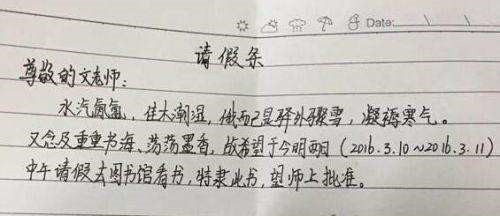 Date:
请假条
尊敬的文老师：
水汽氤氲，佳木潮湿，俄而已是驿外骤雪，凝稀寒气。
又念及重重书海，荡荡墨香，故希望于今明两日（2016.3.10~2016.3.11）
中午请假去图书馆看书，特隶此书，望师上批准。